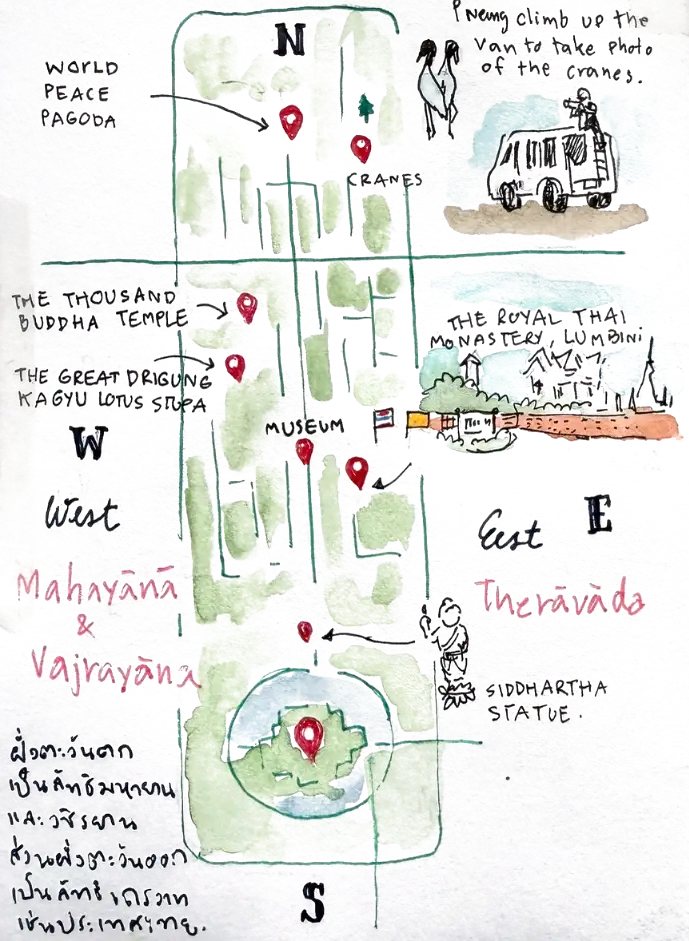 N
P'Neung climb up the
van to take photo
of the cranes.
WORLD
PEACE
PAGODA
CRANES
THE THOUSAND
BUDDHA TEMPLE
THE ROYAL THAI
MONASTERY, LUMBINI
THE GREAT DRIGUNG
KAGYU LOTUS STUPA
MUSEUM
W
West
E
East
Mahayānā
&
Vajrayāna
Therāvàda
SIDDHARTHA
STATUE.
ฝั่งตะวันตก
เป็นลัทธิมหายาน
และวชิรยาน
ส่วนฝั่งตะวันออก
เป็นลัทธิเถรวาท
เช่นประเทศไทย.
S